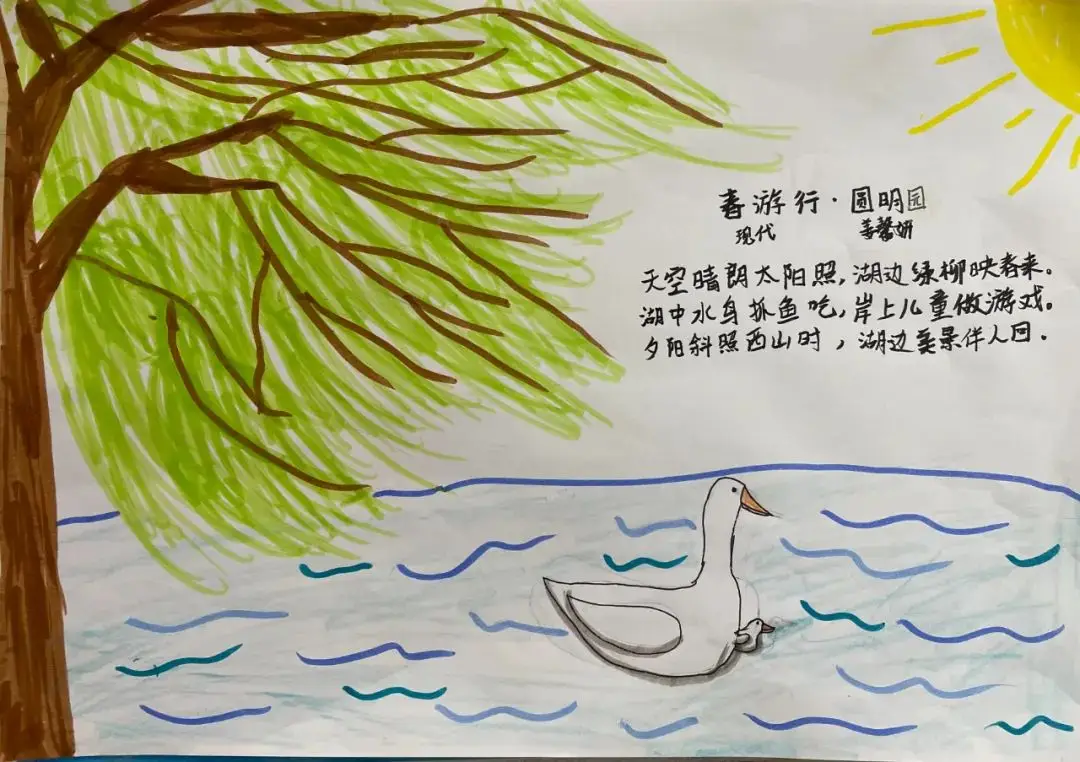 春游行·圆明园
现代 李馨妍
天空晴朗太阳照,湖边绿柳映春来。
湖中水身抓鱼吃,岸上儿童做游戏。
夕阳斜照西山时,湖边美景伴人回.